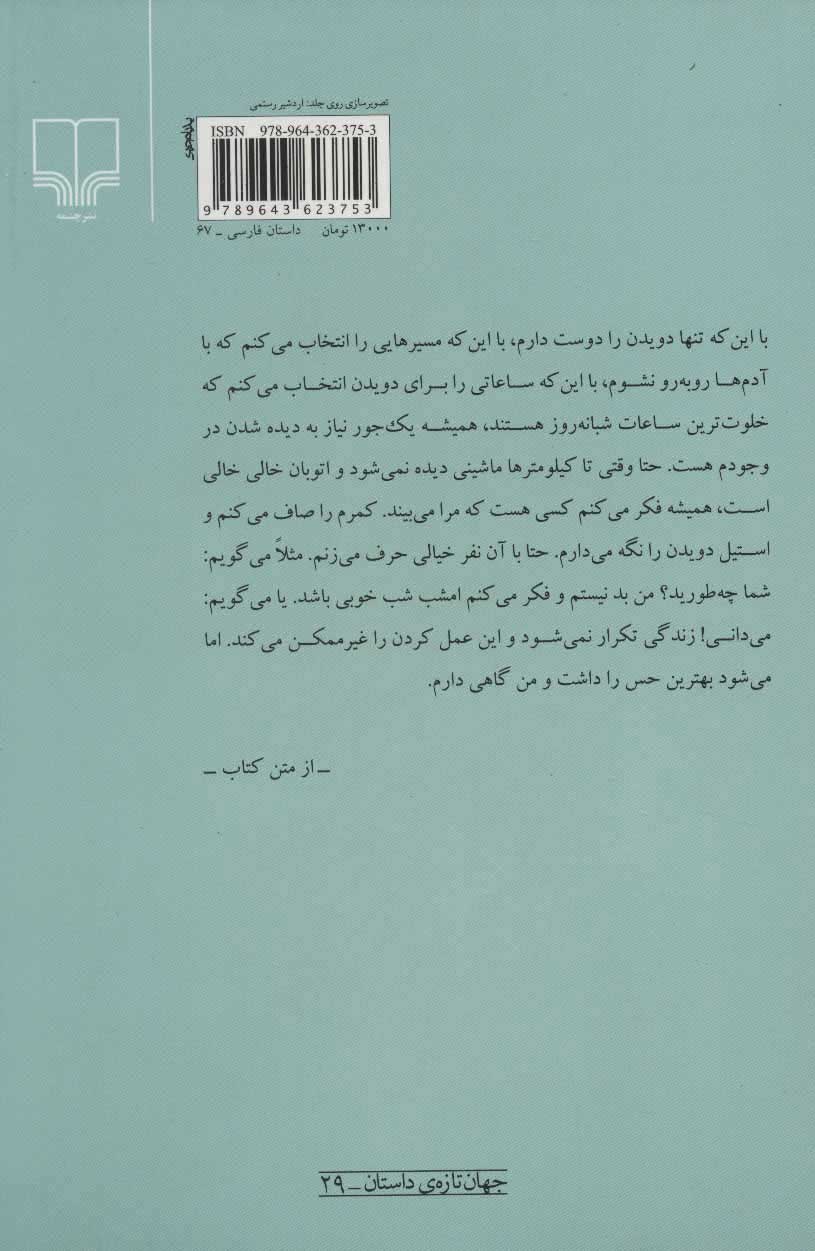 تصویرسازی روی جلد: اردشیر رستمی
ISBN 978-964-362-375-3
9 789643 623753
۱۳۰۰۰ تومان داستان فارسی ـ ۶۷
نشرچشمه
با این‌که تنها دویدن را دوست دارم، با این‌که مسیرهایی را انتخاب می‌کنم که با
آدم‌هـا روبه‌رو نشـوم، با این‌که سـاعاتی را بـرای دویدن انتخـاب می‌کنم که
خلوت‌ترین ساعات شبانه‌روز هسـتند، همیشـه یک‌جور نیاز به دیده شدن در
وجودم هست. حتا وقتی تا کیلومترها ماشینی دیده نمی‌شود و اتوبان خالی خالی
اسـت، همیشه فکر می‌کنم کسی هست که مرا می‌بیند. کمرم را صاف می‌کنم و
استیل دویدن را نگه می‌دارم. حتا با آن نفر خیالی حرف می‌زنم. مثلاً می‌گویم:
شما چه‌طورید؟ من بد نیستم و فکر می‌کنم امشب شب خوبی باشد. یا می‌گویم:
می‌دانـی! زندگی تکرار نمی‌شـود و این عمل کردن را غیرممکـن می‌کند. اما
می‌شود بهترین حس را داشت و من گاهی دارم.
ـ از متن کتاب ـ
جهان تازه‌ی داستان ـ ۲۹